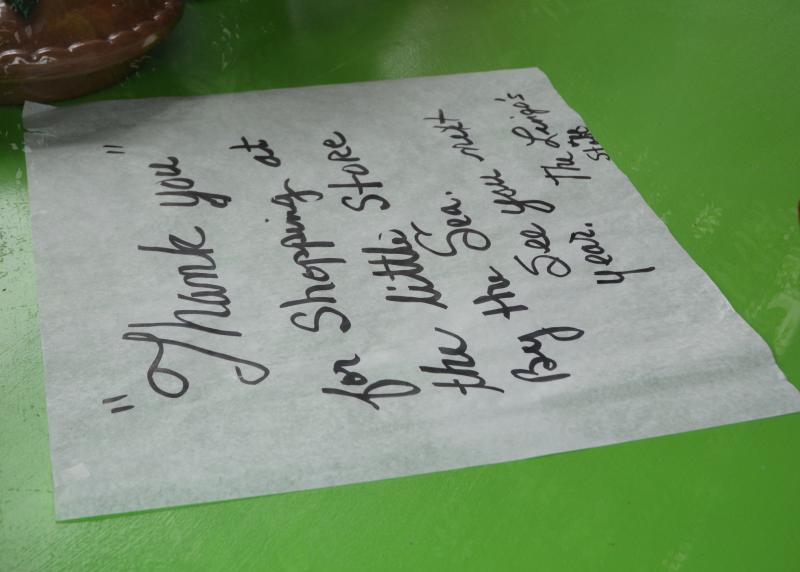 "Thank you"
for Shopping at
the little Store
By the Sea.
See You next
year. The